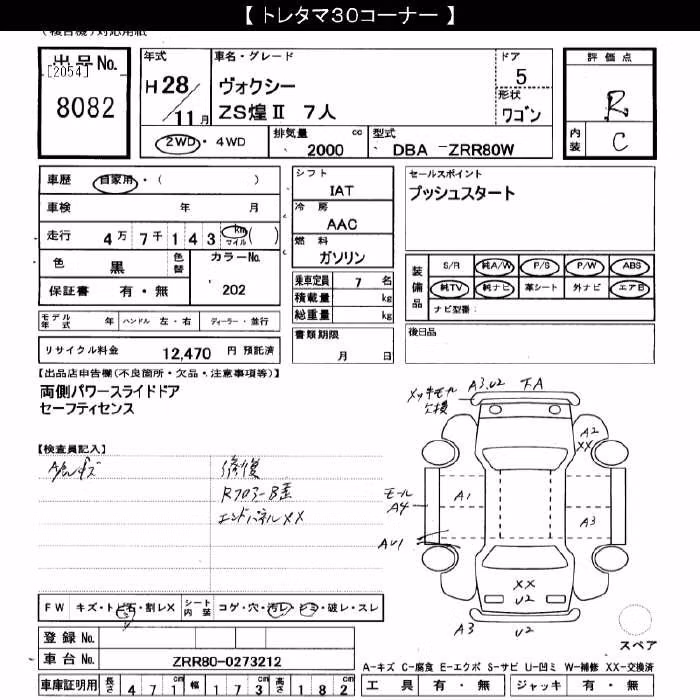 【 トレタマ30コーナー 】
出品No.
[2054]
8082
年式
H 28/11月
車名・グレード
ヴォクシー
ZS煌Ⅱ 7人
ドア
5
形状
ワゴン
評価点
R
内装
C
2WD・4WD
排気量
2000 cc
型式
DBA －ZRR80W
車歴 自家用・( )
車検 年 月
走行 4万 7千 1 4 3 km マイル ( )
色 黒 色替
カラーNo.
202
保証書 有・無
モデル年式 年 ハンドル 左・右 ディーラー・並行
リサイクル料金 12,470 円 預託済
シフト
IAT
冷房
AAC
燃料
ガソリン
乗車定員 7 名
積載量 kg
総重量 kg
書類期限
月 日
セールスポイント
プッシュスタート
装備品
S/R 純A/W P/S P/W ABS
純TV 純ナビ 革シート 外ナビ エアB
ナビ型番:
後日品
【出品店申告欄(不良箇所・欠品・注意事項等)】
両側パワースライドドア
セーフティセンス
【検査員記入】
修復
エンドパネルXX
A3.U2
欠損
A2
XX
モール
A4
A1
A3
AU1
XX
U2
A3
U2
スペア
FW キズ・トビ石・割レX シート内装 コゲ・穴・汚レ・シミ・破レ・スレ
登録No.
車台No. ZRR80-0273212
車庫証明用 長さ 4 7 1 cm 幅 1 7 3 cm 高さ 1 8 2 cm
A-キズ C-腐食 E-エクボ S-サビ U-凹ミ W-補修 XX-交換済
工具 有・無 ジャッキ 有・無